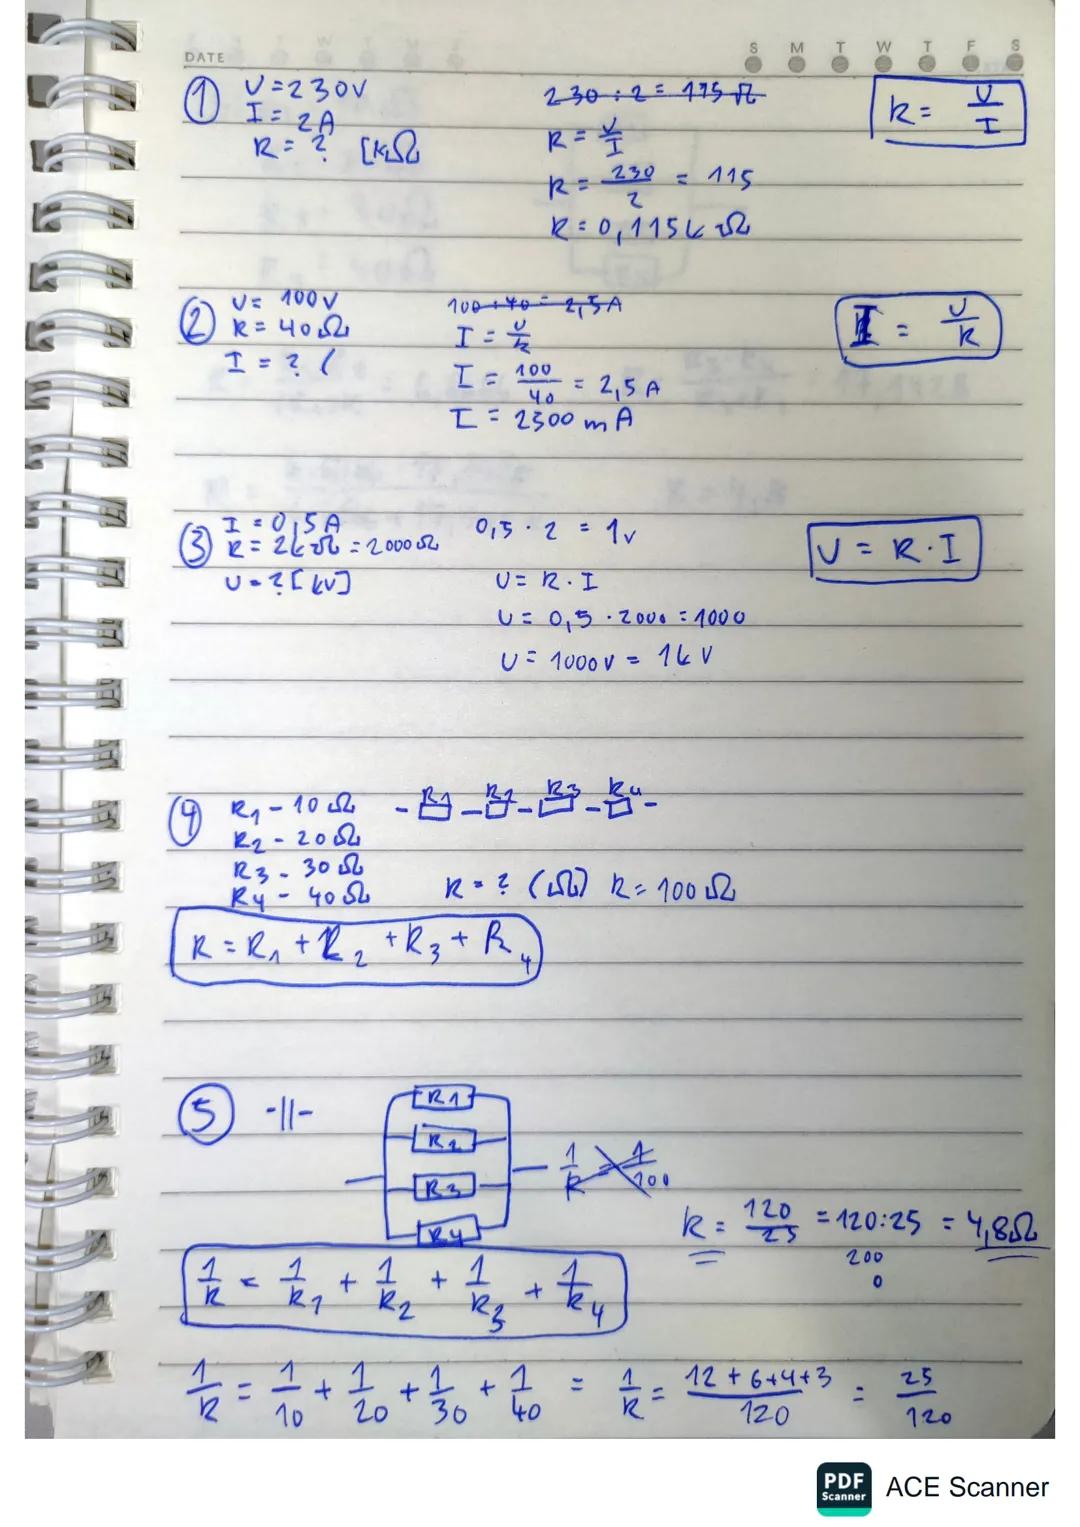 DATE
S M T W T F S
① U = 230V
I = 2A
R = ? [kΩ
230 : 2 = 115 Ω
R = U/I
R = 230/2 = 115
R = 0,115k Ω
R = U/I
② U = 100V
R = 40Ω
I = ? (
100 : 40 = 2,5A
I = U/R
I = 100/40 = 2,5 A
I = 2500 mA
I = U/R
③ I = 0,5A
R = 2kΩ = 2000Ω
U = ? [kV]
0,5 · 2 = 1v
U = R · I
U = 0,5 · 2000 = 1000
U = 1000V = 1kV
U = R · I
④ R1 - 10Ω
R2 - 20Ω
R3 - 30Ω
R4 - 40Ω
R1 R2 R3 R4
R = ? (Ω) R = 100Ω
R = R1 + R2 + R3 + R4
⑤ -||-
R1
R2
R3
R4
1/R = 1/100
R = 120/25 = 120:25 = 4,8Ω
200
0
1/R = 1/R1 + 1/R2 + 1/R3 + 1/R4
1/R = 1/10 + 1/20 + 1/30 + 1/40 = 1/R = 12+6+4+3/120 = 25/120
PDF
Scanner
ACE Scanner